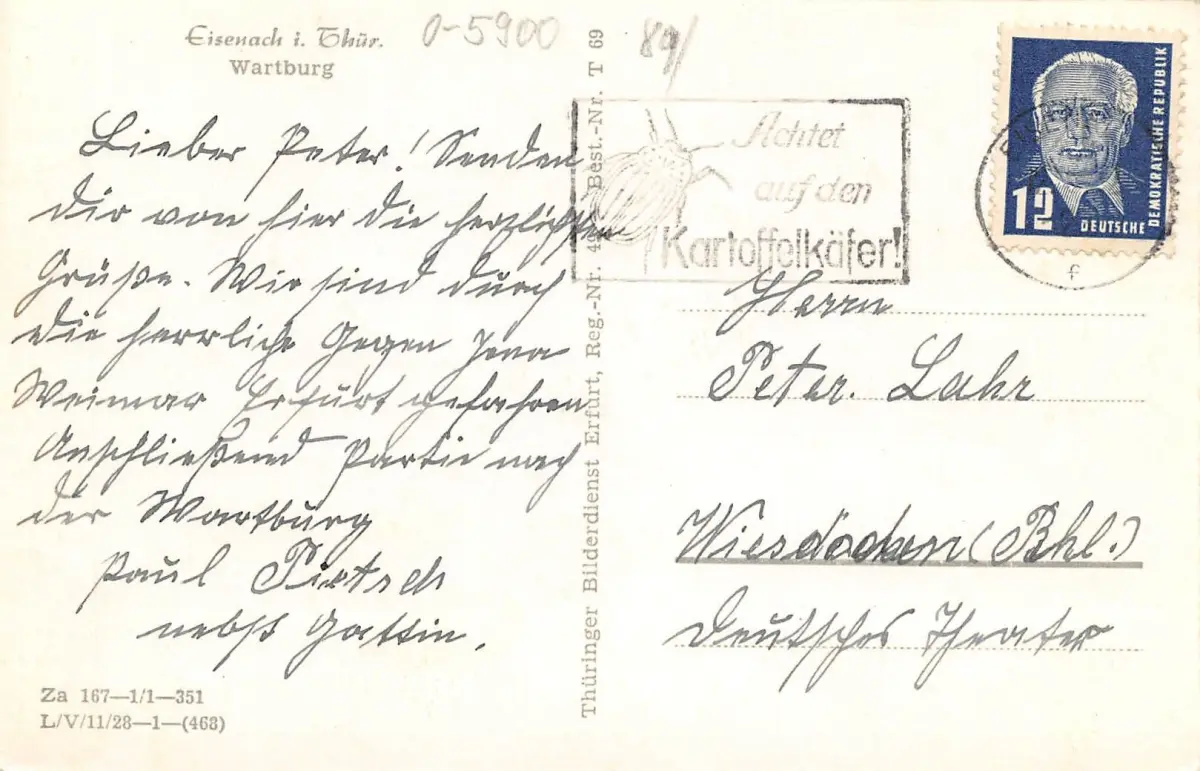 Eisenach i. Thür.
Wartburg
0-5900
Lieber Peter! Senden
dir von hier die herzlichsten
Grüße. Wir sind durch
die herrliche Gegen Jena
Weimar Erfurt gefahren
Anschließend Partie nach
der Wartburg
Paul Pietsch
nebst Gattin.
Za 167—1/1—351
L/V/11/28—1—(468)
Thüringer Bilderdienst Erfurt, Reg.-Nr. 49 Best.-Nr. T 69
Achtet
auf den
Kartoffelkäfer!
12
DEUTSCHE
DEMOKRATISCHE REPUBLIK
f
Herrn
Peter. Lahr
(Rhl.)
Deutsches Theater